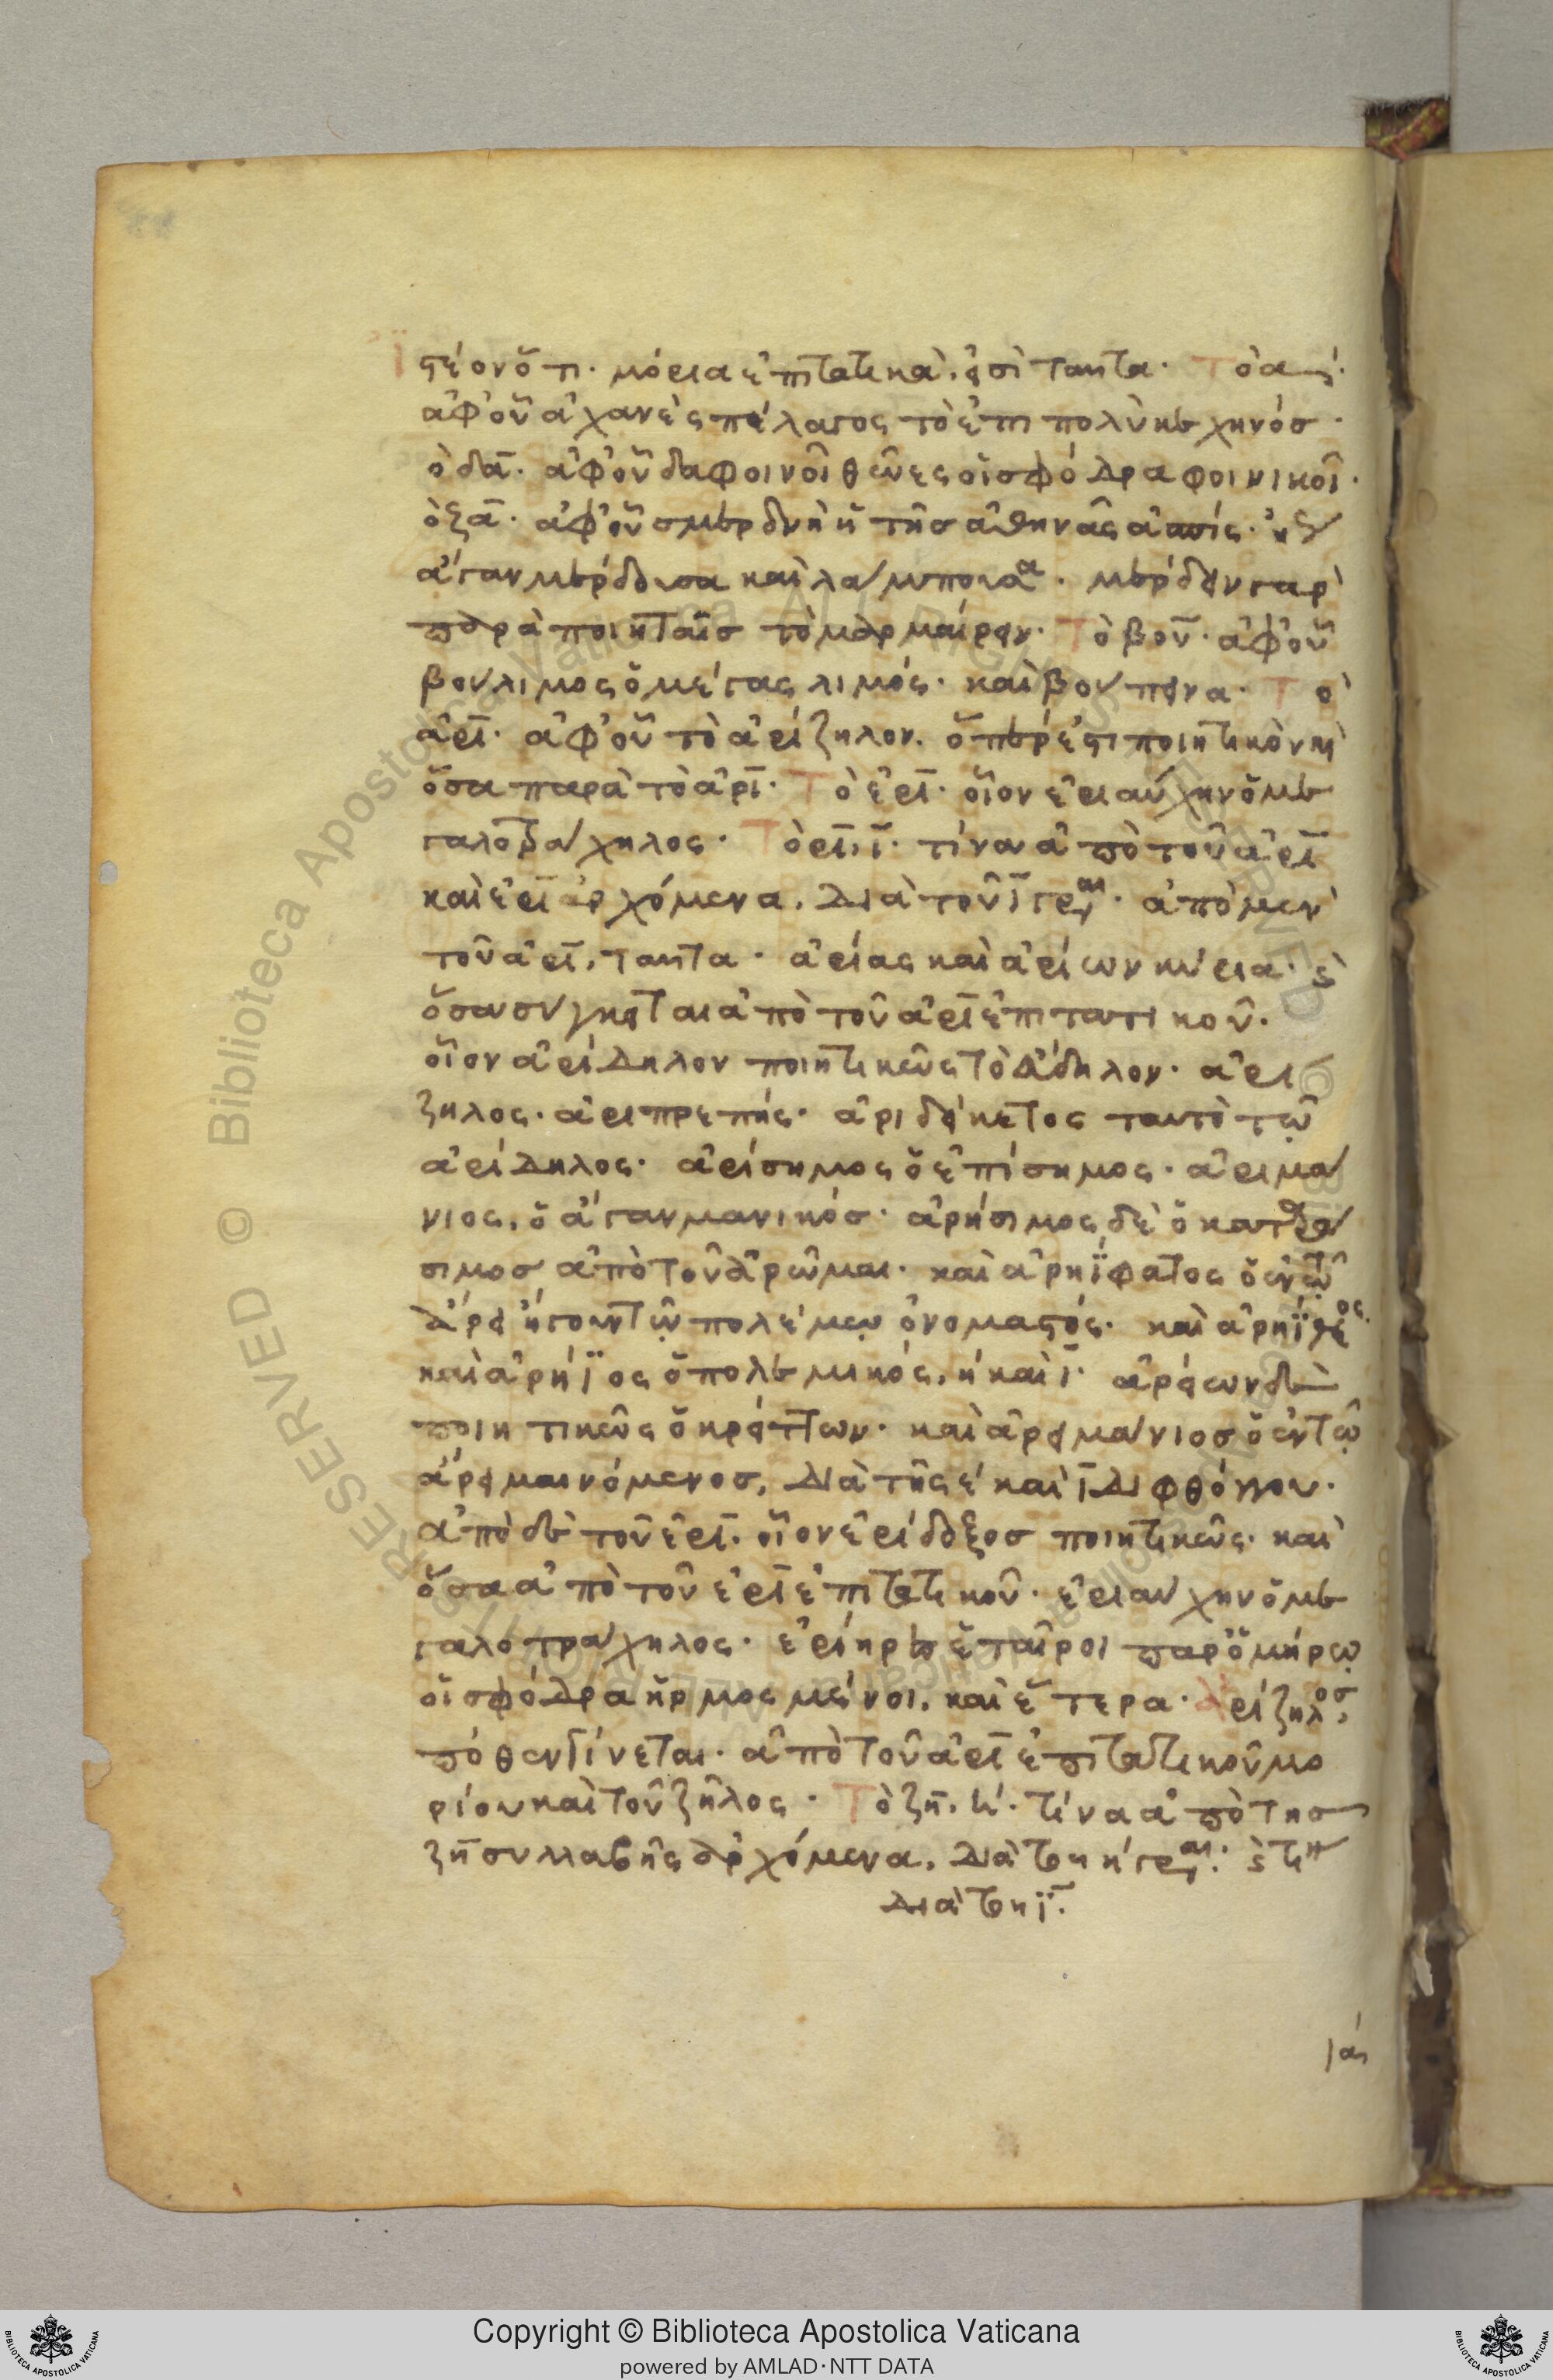 Ἰστέον ὅτι· μόρια ἐπιτατικὰ, εἰσὶ ταῦτα· Τὸ α
ἀφ' οὗ ἀχανὲς πέλαγος τὸ ἐπιπολὺ κεχηνόσ·
ὁ δᾱ· ἀφ' οὗ δαφοινοὶ θῶες οἱ σφόδρα φοινικοῖ·
ὁ ζᾱ· ἀφ' οὗ σμερδνὴ ἡ τῆσ ἀθηνᾶς ἀσπίς· ἡ
ἄγαν μερδουσα καὶ λάμπουσα· μέρδειν γαρ
παρὰ ποιηταῖσ τὸ μαρμαίρειν· Τὸ βοῡ· ἀφ' οὗ
βούλιμος ὁ μέγας λιμός· καὶ βούπεινα· Τὸ
ἀρῑ· ἀφ' οὗ τὸ ἀρίζηλον. ὅπερ ἐστι ποιητικὸν καὶ
ὅσα παρὰ τὸ ἀρῑ· Τὸ ἐρῑ· οἷον ἐριαύχην ὁ με
γαλοτράχηλος· Τὸ ρῑ, ῑ· τίνα ἀπὸ τοῦ ἀρῑ
καὶ ἐρῑ ἀρχόμενα, διὰ τοῦ ῑ γράφεται· ἀπὸ μεν
τοῦ ἀρῑ, ταῦτα· ἀρίας καὶ ἀρίων κύρια· καὶ
ὅσα σύγκειται ἀπὸ τοῦ ἀρῑ ἐπιτατικοῦ.
οἷον ἀρίδηλον ποιητικῶς τὸ ἄδηλον· ἀρί
ζηλος· ἀριπρεπής· ἀριδείκετος ταυτὸ τῷ
ἀρίδηλος· ἀρίσημος ὁ ἐπίσημος· ἀριμά
νιος, ὁ ἄγαν μανικόσ· ἀρήσιμος δὲ ὁ καταρά
σιμοσ ἀπὸ τοῦ ἀρῶμαι· καὶ ἀρηΐφατος ὁ ἐν τῷ
ἄρει ἤγουν τῷ πολέμῳ ὀνομαστός· καὶ ἀρηΐθεος
καὶ ἀρήϊος ὁ πολεμικός, ἠ καὶ ῑ· ἀρείων δὲ
ποιητικῶς ὁ κρείττων· καὶ ἀρειμάνιοσ ὁ ἐν τῷ
ἄρει μαινόμενοσ, διὰ τῆς ε καὶ ῑ διφθόγγου·
ἀπὸ δὲ τοῦ ἐρῑ· οἷον ἐρίδοξοσ ποιητικῶς· καὶ
ὅσα ἀπὸ τοῦ ἐρῑ ἐπιτατικοῦ· ἐριαύχην ὁ με
γαλοτράχηλος· ἐρίηρες ἑταῖροι παρ' ὁμήρῳ
οἱ σφόδρα ἡρμοσμένοι, καὶ ἕτερα· Ἀρίζηλοσ,
πόθεν γίνεται· ἀπὸ τοῦ ἀρῑ ἐπιτατικοῦ μο
ρίου καὶ τοῦ ζῆλος· Τὸ ζη, η· τίνα ἀπὸ τησ
ζη συλλαβῆς ἀρχόμενα, διὰ του η γράφεται· καὶ τινα
διὰ του ῑ·